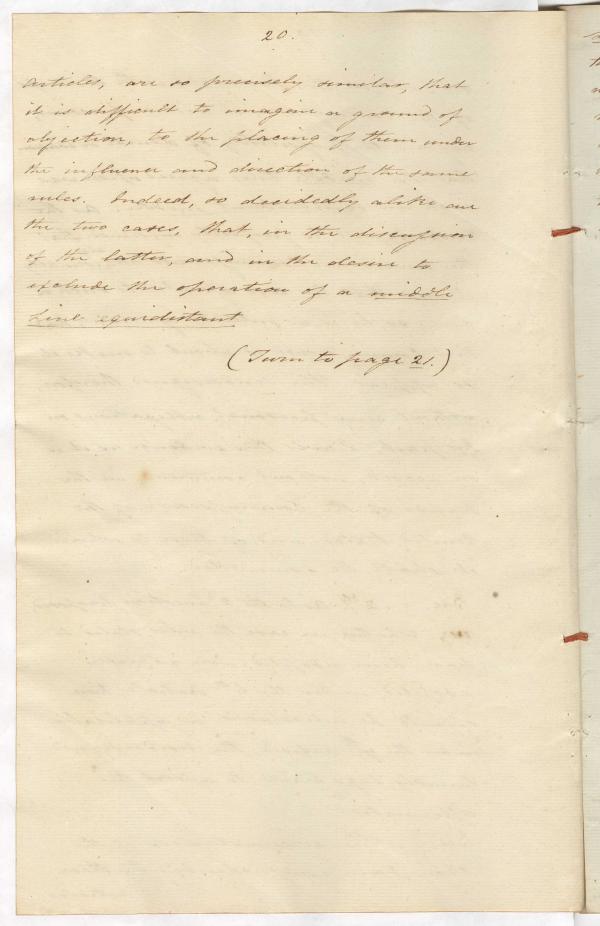 20.
articles, are so precisely similar, that
it is difficult to imagine a ground of
objection, to the placing of them under
the influence and direction of the same
rules. Indeed, so decidedly alike are
the two cases, that, in the discussion
of the latter, and in the desire to
exclude the operation of a middle
Line equidistant
(Turn to page 21.)